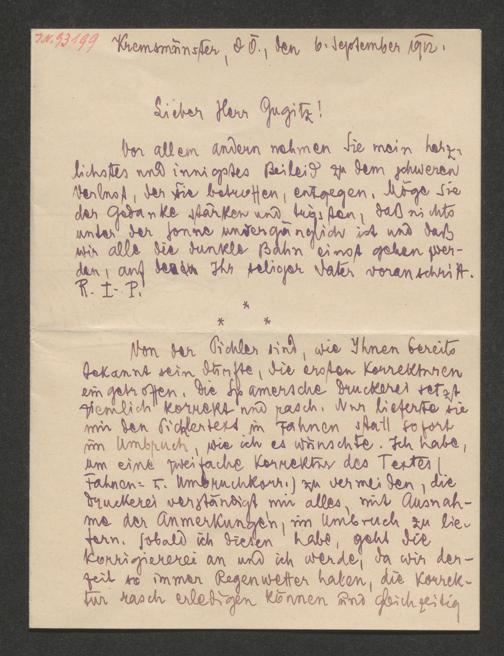 J.N. 93199
Kremsmünster, O.Ö., den 6. September 1912.
Lieber Herr Gugitz!
Vor allem andern nehmen Sie mein herz-
lichstes und innigstes Beileid zu dem schweren
Verlust, der Sie betroffen, entgegen. Möge Sie
der Gedanke stärken und trösten, daß nichts
unter der Sonne unvergänglich ist und daß
wir alle die dunkle Bahn einst gehen wer-
den, auf der Ihr seliger Vater voranschritt.
R. I. P.
*
* *
Von der Pichler sind, wie Ihnen bereits
bekannt sein dürfte, die ersten Korrekturen
eingetroffen. Die Spamersche Druckerei setzt
ziemlich korrekt und rasch. Nur lieferte sie
mir den Pichlertext in Fahnen statt sofort
im Umbruch, wie ich es wünschte. Ich habe,
um eine zweifache Korrektur des Textes (
Fahnen- u. Umbruchkorr.) zu vermeiden, die
Druckerei verständigt mir alles, mit Ausnah-
me der Anmerkungen, im Umbruch zu lie-
fern. Sobald ich diesen habe, geht die
Korrigiererei an und ich werde, da wir der-
zeit so immer Regenwetter haben, die Korrek-
tur rasch erledigen können und gleichzeitig